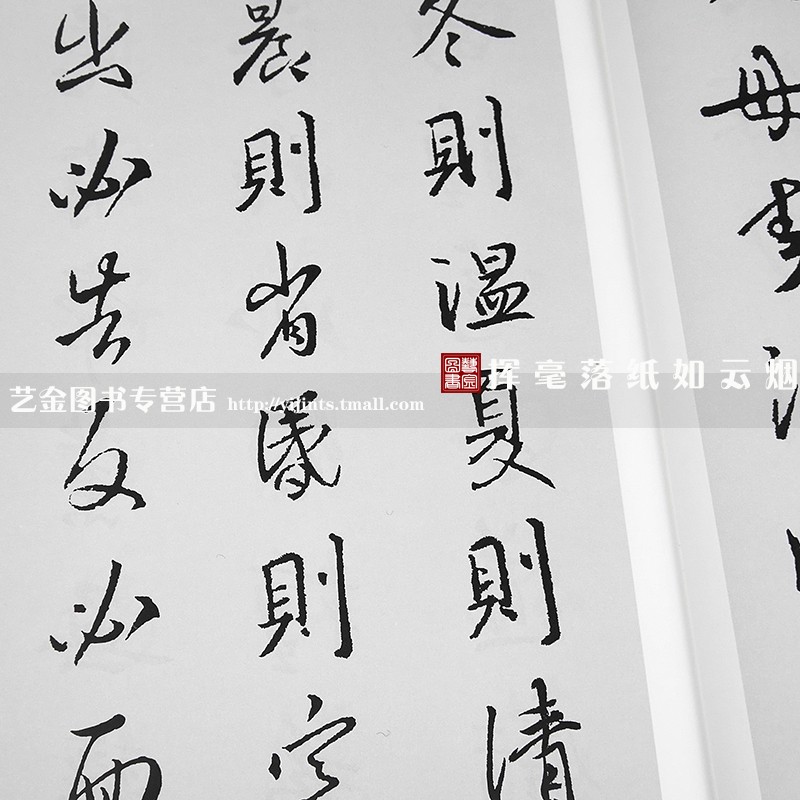 母責
冬則温夏則清
晨則省昏則定
出必告反必面
挥毫落纸如云烟
艺金图书专营店 http://yjints.tmall.com